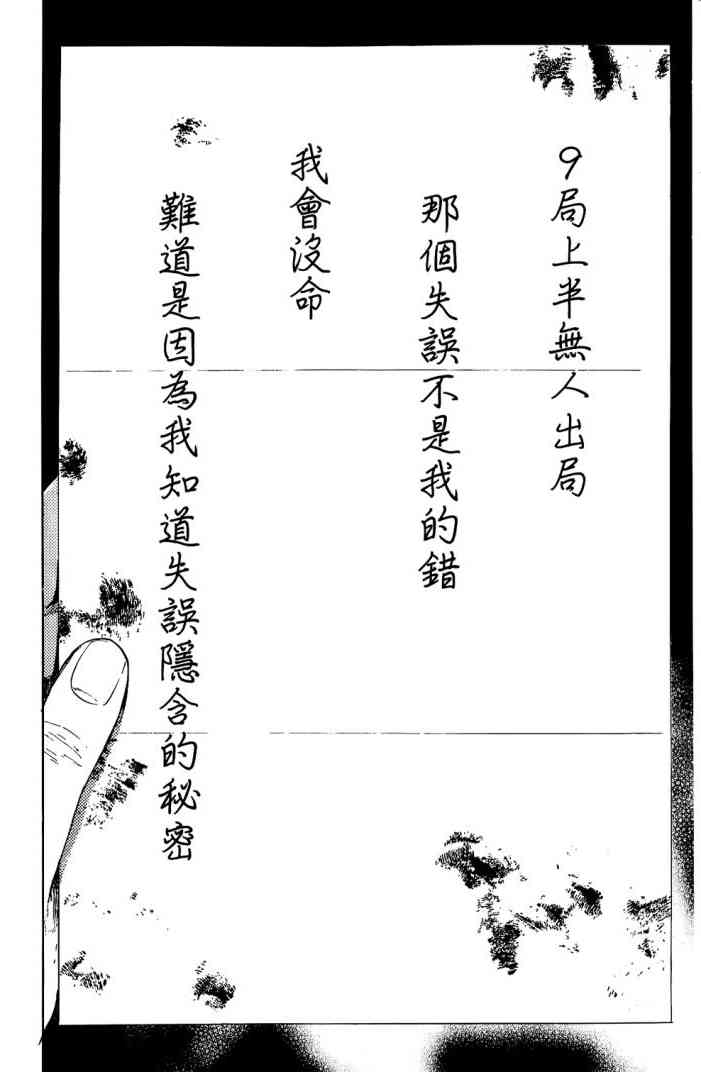 9局上半無人出局
那個失誤不是我的錯
我會沒命
難道是因為我知道失誤隱含的秘密